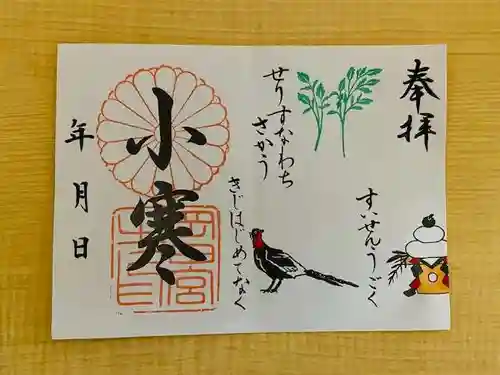 奉拝
すいせんうごく
せりすなわち
さかう
きじはじめてなく
小寒
年月日